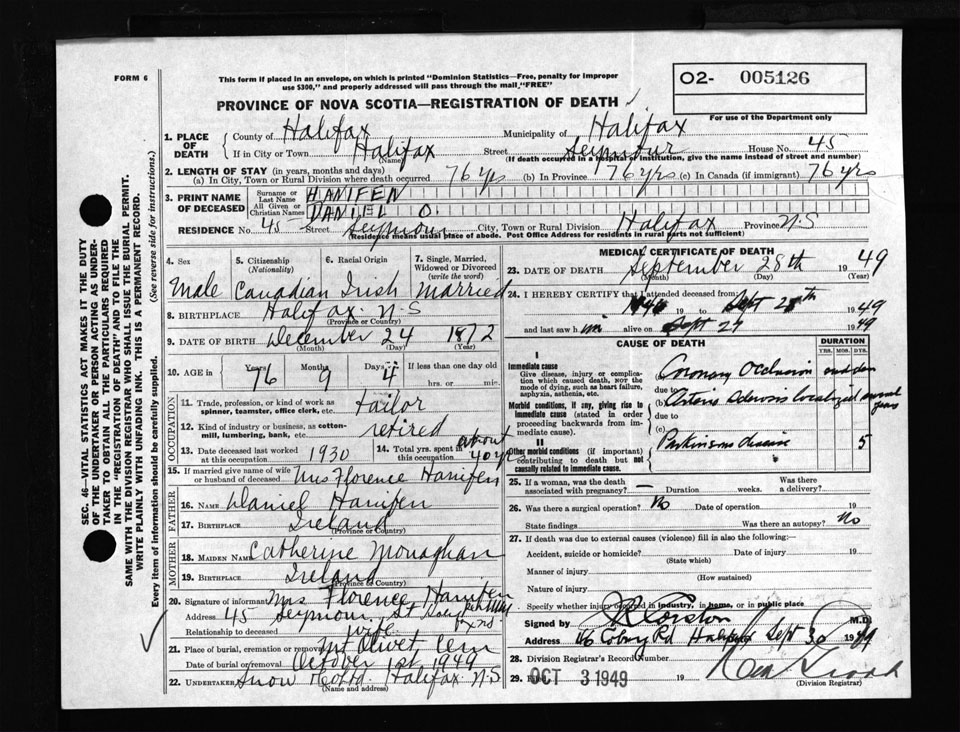 FORM 6
This form if placed in an envelope, on which is printed "Dominion Statistics—Free, penalty for improper
use $300," and properly addressed will pass through the mail "FREE"
O2- 005126
For use of the Department only
PROVINCE OF NOVA SCOTIA—REGISTRATION OF DEATH
1. PLACE OF DEATH County of Halifax Municipality of Halifax
If in City or Town Halifax (Name) Street Seymour House No. 45
(If death occurred in a hospital or institution, give the name instead of street and number)
2. LENGTH OF STAY (in years, months and days)
(a) In City, Town or Rural Division where death occurred 76 yrs (b) In Province 76 yrs (c) In Canada (if immigrant) 76 yrs
3. PRINT NAME OF DECEASED Surname or Last Name HANIFEN
All Given or Christian Names DANIEL O.
RESIDENCE No. 45 Street Seymour City, Town or Rural Division Halifax Province N.S
(Residence means usual place of abode. Post Office Address for residents in rural parts not sufficient)
4. Sex 5. Citizenship (Nationality) 6. Racial Origin 7. Single, Married, Widowed or Divorced (write the word)
Male Canadian Irish Married
8. BIRTHPLACE Halifax N.S
(Province or Country)
9. DATE OF BIRTH December 24 1872
(Month) (Day) (Year)
10. AGE in Years 76 Months 9 Days 4 If less than one day old
hrs. or min.
OCCUPATION
11. Trade, profession, or kind of work as spinner, teamster, office clerk, etc. tailor
12. Kind of industry or business, as cotton-mill, lumbering, bank, etc. retired
13. Date deceased last worked at this occupation 1930 14. Total yrs. spent in this occupation about 40 yrs
15. If married give name of wife or husband of deceased Mrs Florence Hanifen
FATHER
16. NAME Daniel Hanifen
17. BIRTHPLACE Ireland
(Province or Country)
MOTHER
18. MAIDEN NAME Catherine Monaghan
19. BIRTHPLACE Ireland
(Province or Country)
20. Signature of informant Mrs Florence Hanifen
Address 45 Seymour St
Relationship to deceased wife
21. Place of burial, cremation or removal Mt Olivet Cem
Date of burial or removal October 1st 1949
22. UNDERTAKER Snow & Co Ltd. Halifax N.S
(Name and address)
MEDICAL CERTIFICATE OF DEATH
23. DATE OF DEATH September 28th 1949
(Month) (Day) (Year)
24. I HEREBY CERTIFY that I attended deceased from:
19 to Sept 28th 1949
and last saw h im alive on Sept 27 1949
CAUSE OF DEATH
DURATION
YRS. MOS. DYS.
I
Immediate cause
Give disease, injury or complication which caused death, NOT the mode of dying, such as heart failure, asphyxia, asthenia, etc.
(a) Coronary Occlusion sudden
due to
Morbid conditions, if any, giving rise to immediate cause (stated in order proceeding backwards from immediate cause).
(b) Arterio Sclerosis localized several years
due to
(c)
II
Other morbid conditions (if important) contributing to death but not causally related to immediate cause.
Parkinsons disease 5
25. If a woman, was the death associated with pregnancy? — Duration weeks. Was there a delivery?
26. Was there a surgical operation? No Date of operation 19
State findings Was there an autopsy? No
27. If death was due to external causes (violence) fill in also the following:
Accident, suicide or homicide? Date of injury 19
(State which)
Manner of injury
(How sustained)
Nature of injury
Specify whether injury occurred in industry, in home, or in public place
Signed by Corston M.D.
Address 46 Coburg Rd Halifax Sept 30 1949
28. Division Registrar's Record Number
29. Filed OCT 3 1949 19
(Division Registrar)
SEC. 46—VITAL STATISTICS ACT MAKES IT THE DUTY
OF THE UNDERTAKER OR PERSON ACTING AS UNDER-
TAKER TO OBTAIN ALL THE PARTICULARS REQUIRED
IN THE "REGISTRATION OF DEATH" AND TO FILE THE
SAME WITH THE DIVISION REGISTRAR WHO SHALL ISSUE THE BURIAL PERMIT.
WRITE PLAINLY WITH UNFADING INK. THIS IS A PERMANENT RECORD.
Every item of information should be carefully supplied. (See reverse side for instructions.)